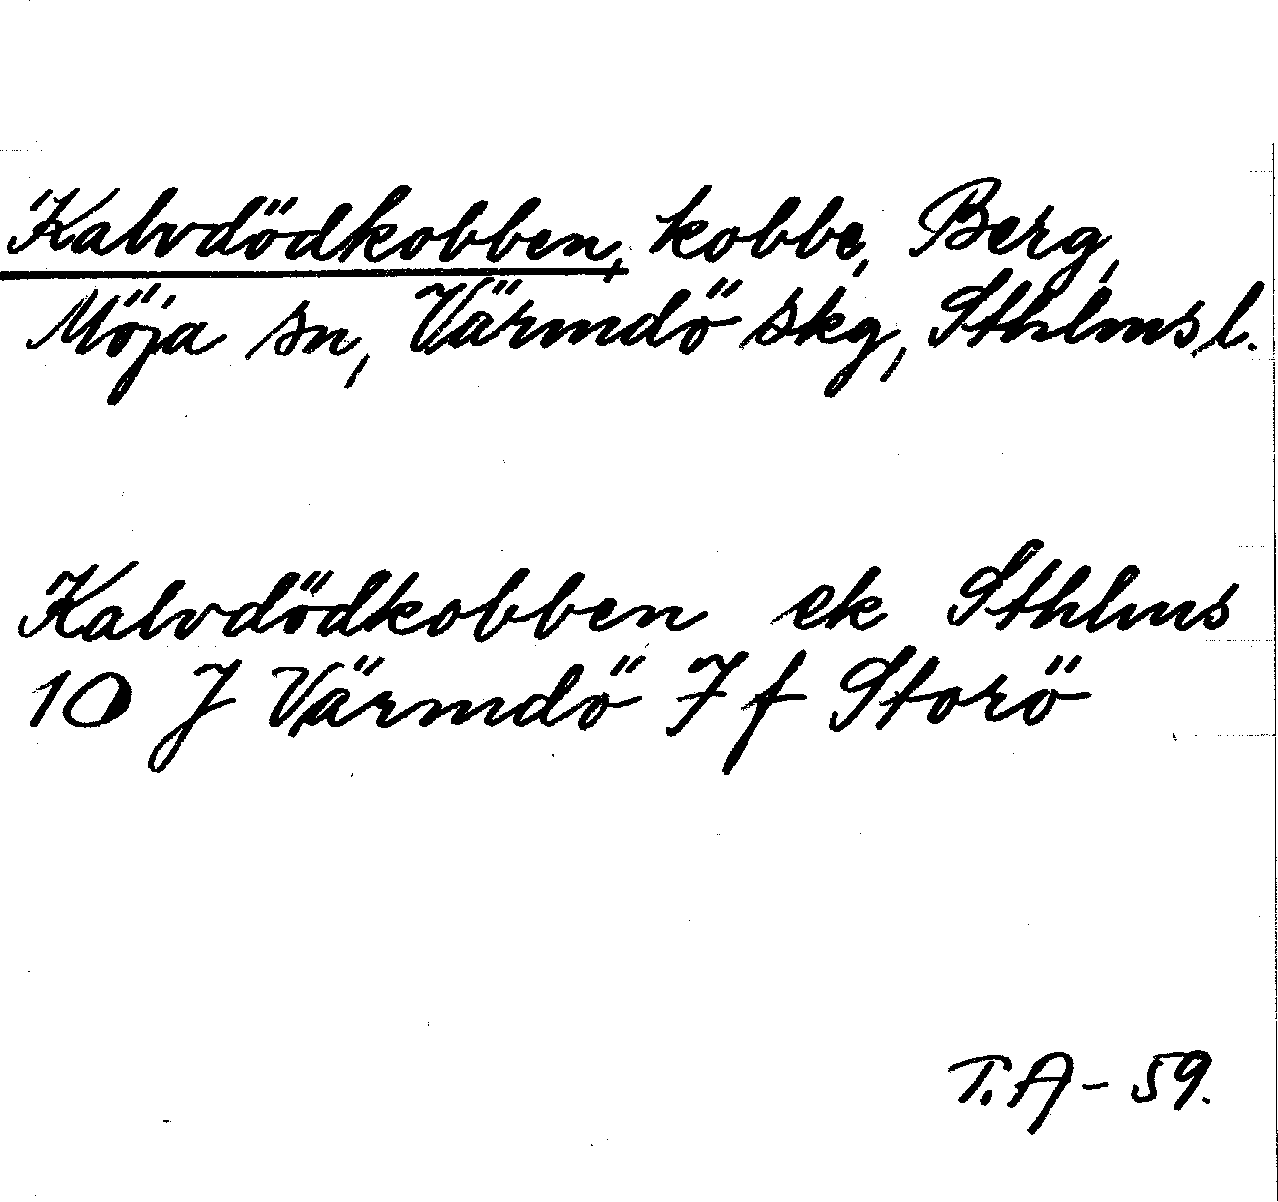 Kalvdödkobben, kobbe, Berg,
Möja sn, Värmdö skg, Sthlms l.
Kalvdödkobben ek Sthlms
10 J Värmdö 7 f Storö
T.A - 59.